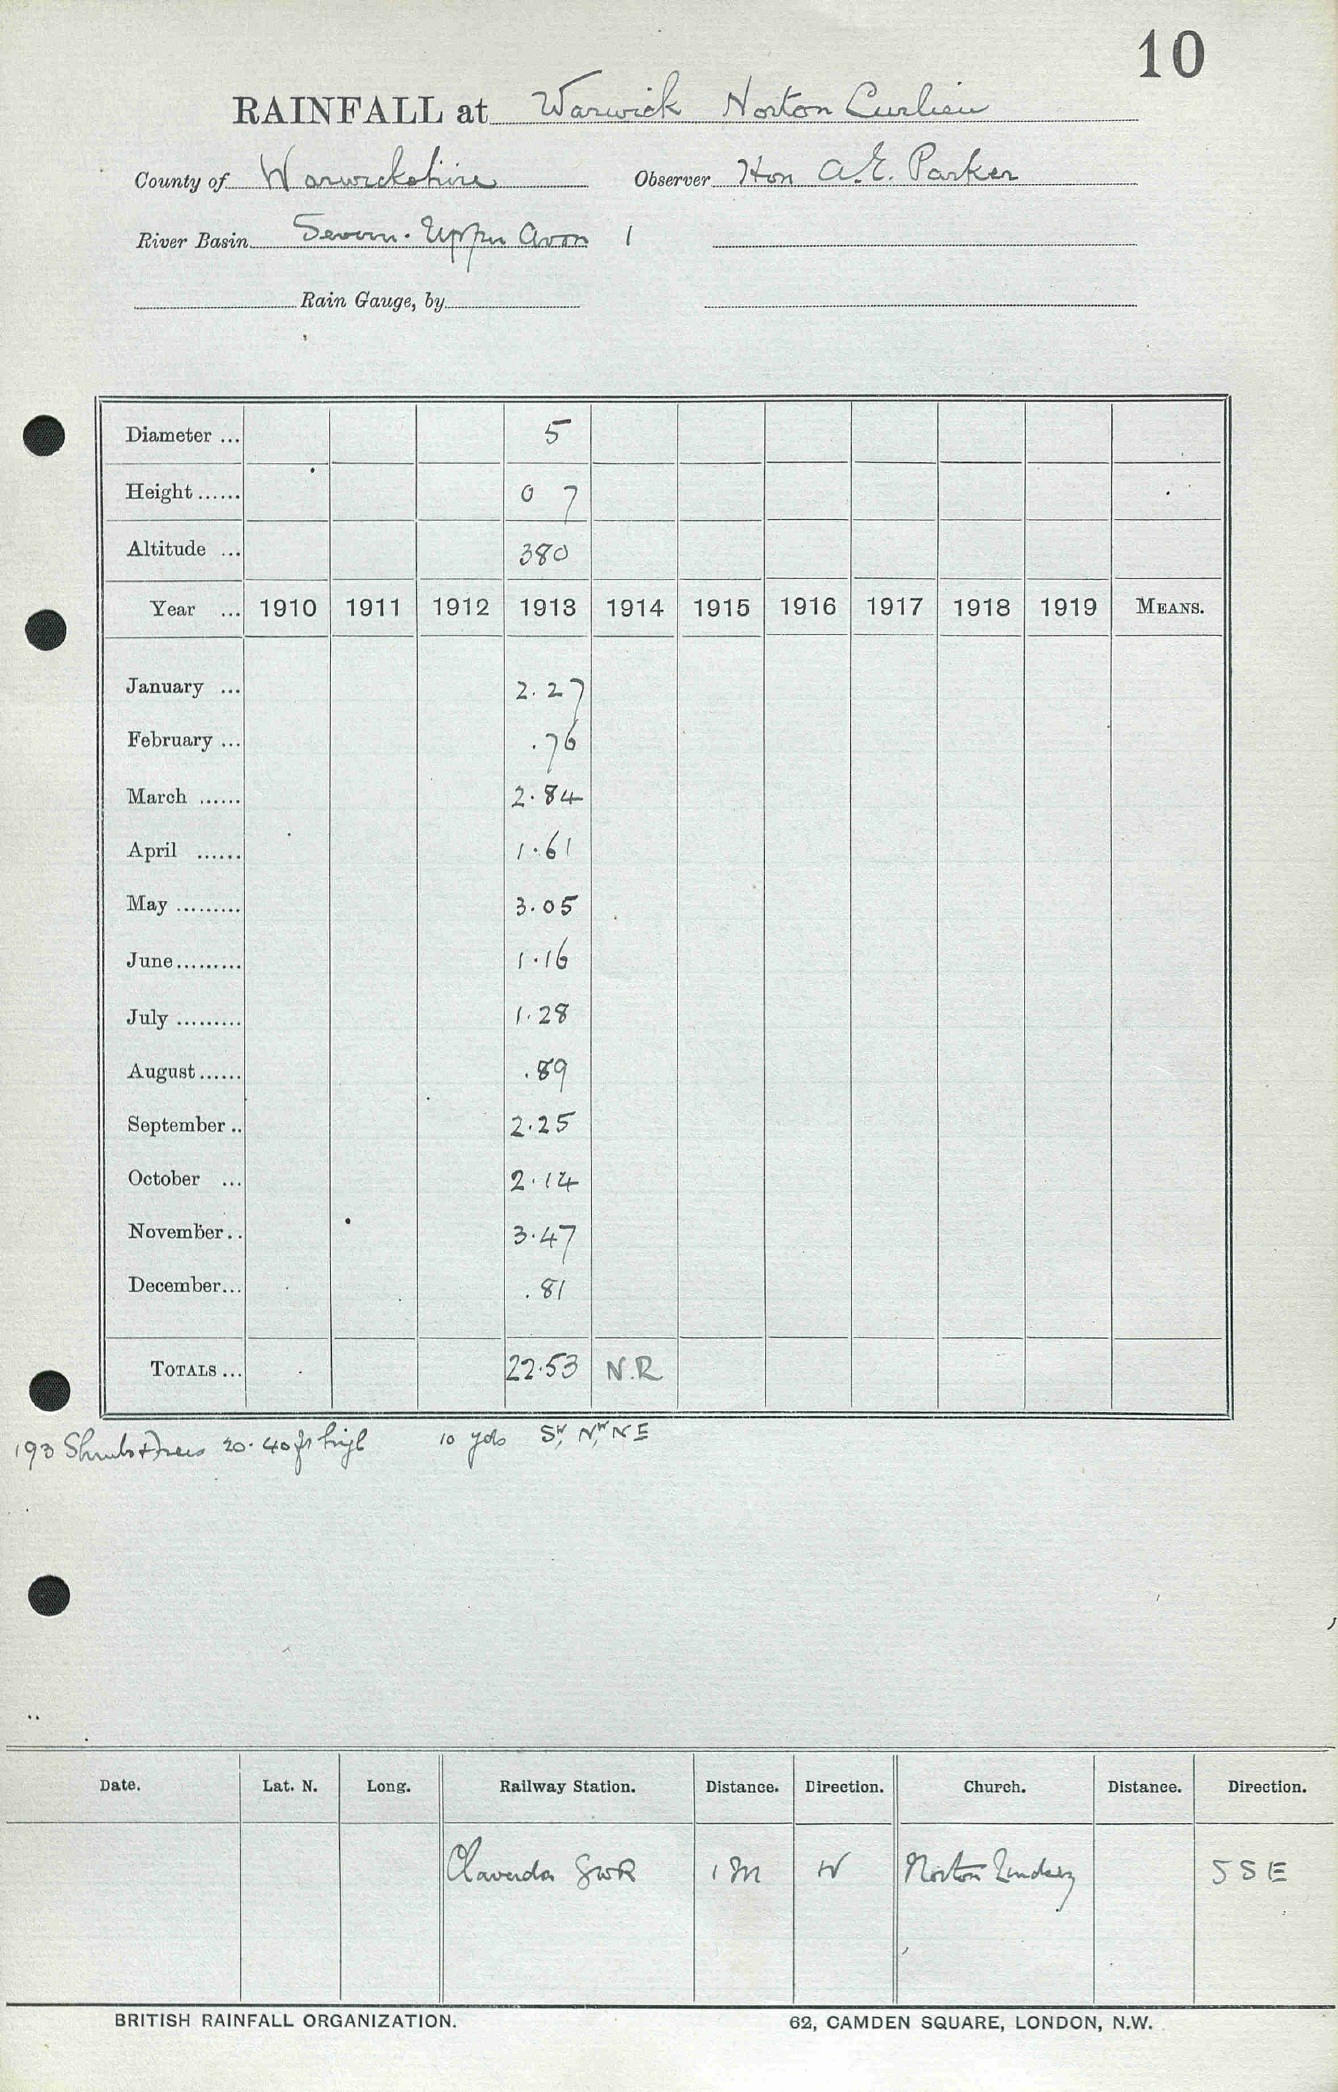 10
RAINFALL at Warwick Norton Curlieu
County of Warwickshire Observer Hon A.E. Parker
River Basin Severn. Upper Avon 1
Rain Gauge, by
Diameter ... 5
Height ...... 0 7
Altitude ... 380
Year ... 1910 1911 1912 1913 1914 1915 1916 1917 1918 1919 MEANS.
January ... 2.27
February ... .76
March ...... 2.84
April ...... 1.61
May ......... 3.05
June ......... 1.16
July ......... 1.28
August ...... .89
September .. 2.25
October ... 2.14
November .. 3.47
December ... .81
TOTALS ... 22.53 N.R
Shrubs & trees 20-40 ft high 10 yds SW, NW, NE
Date. Lat. N. Long. Railway Station. Distance. Direction. Church. Distance. Direction.
Claverdon GWR 1 M W Norton Lindsey SSE
BRITISH RAINFALL ORGANIZATION. 62, CAMDEN SQUARE, LONDON, N.W.